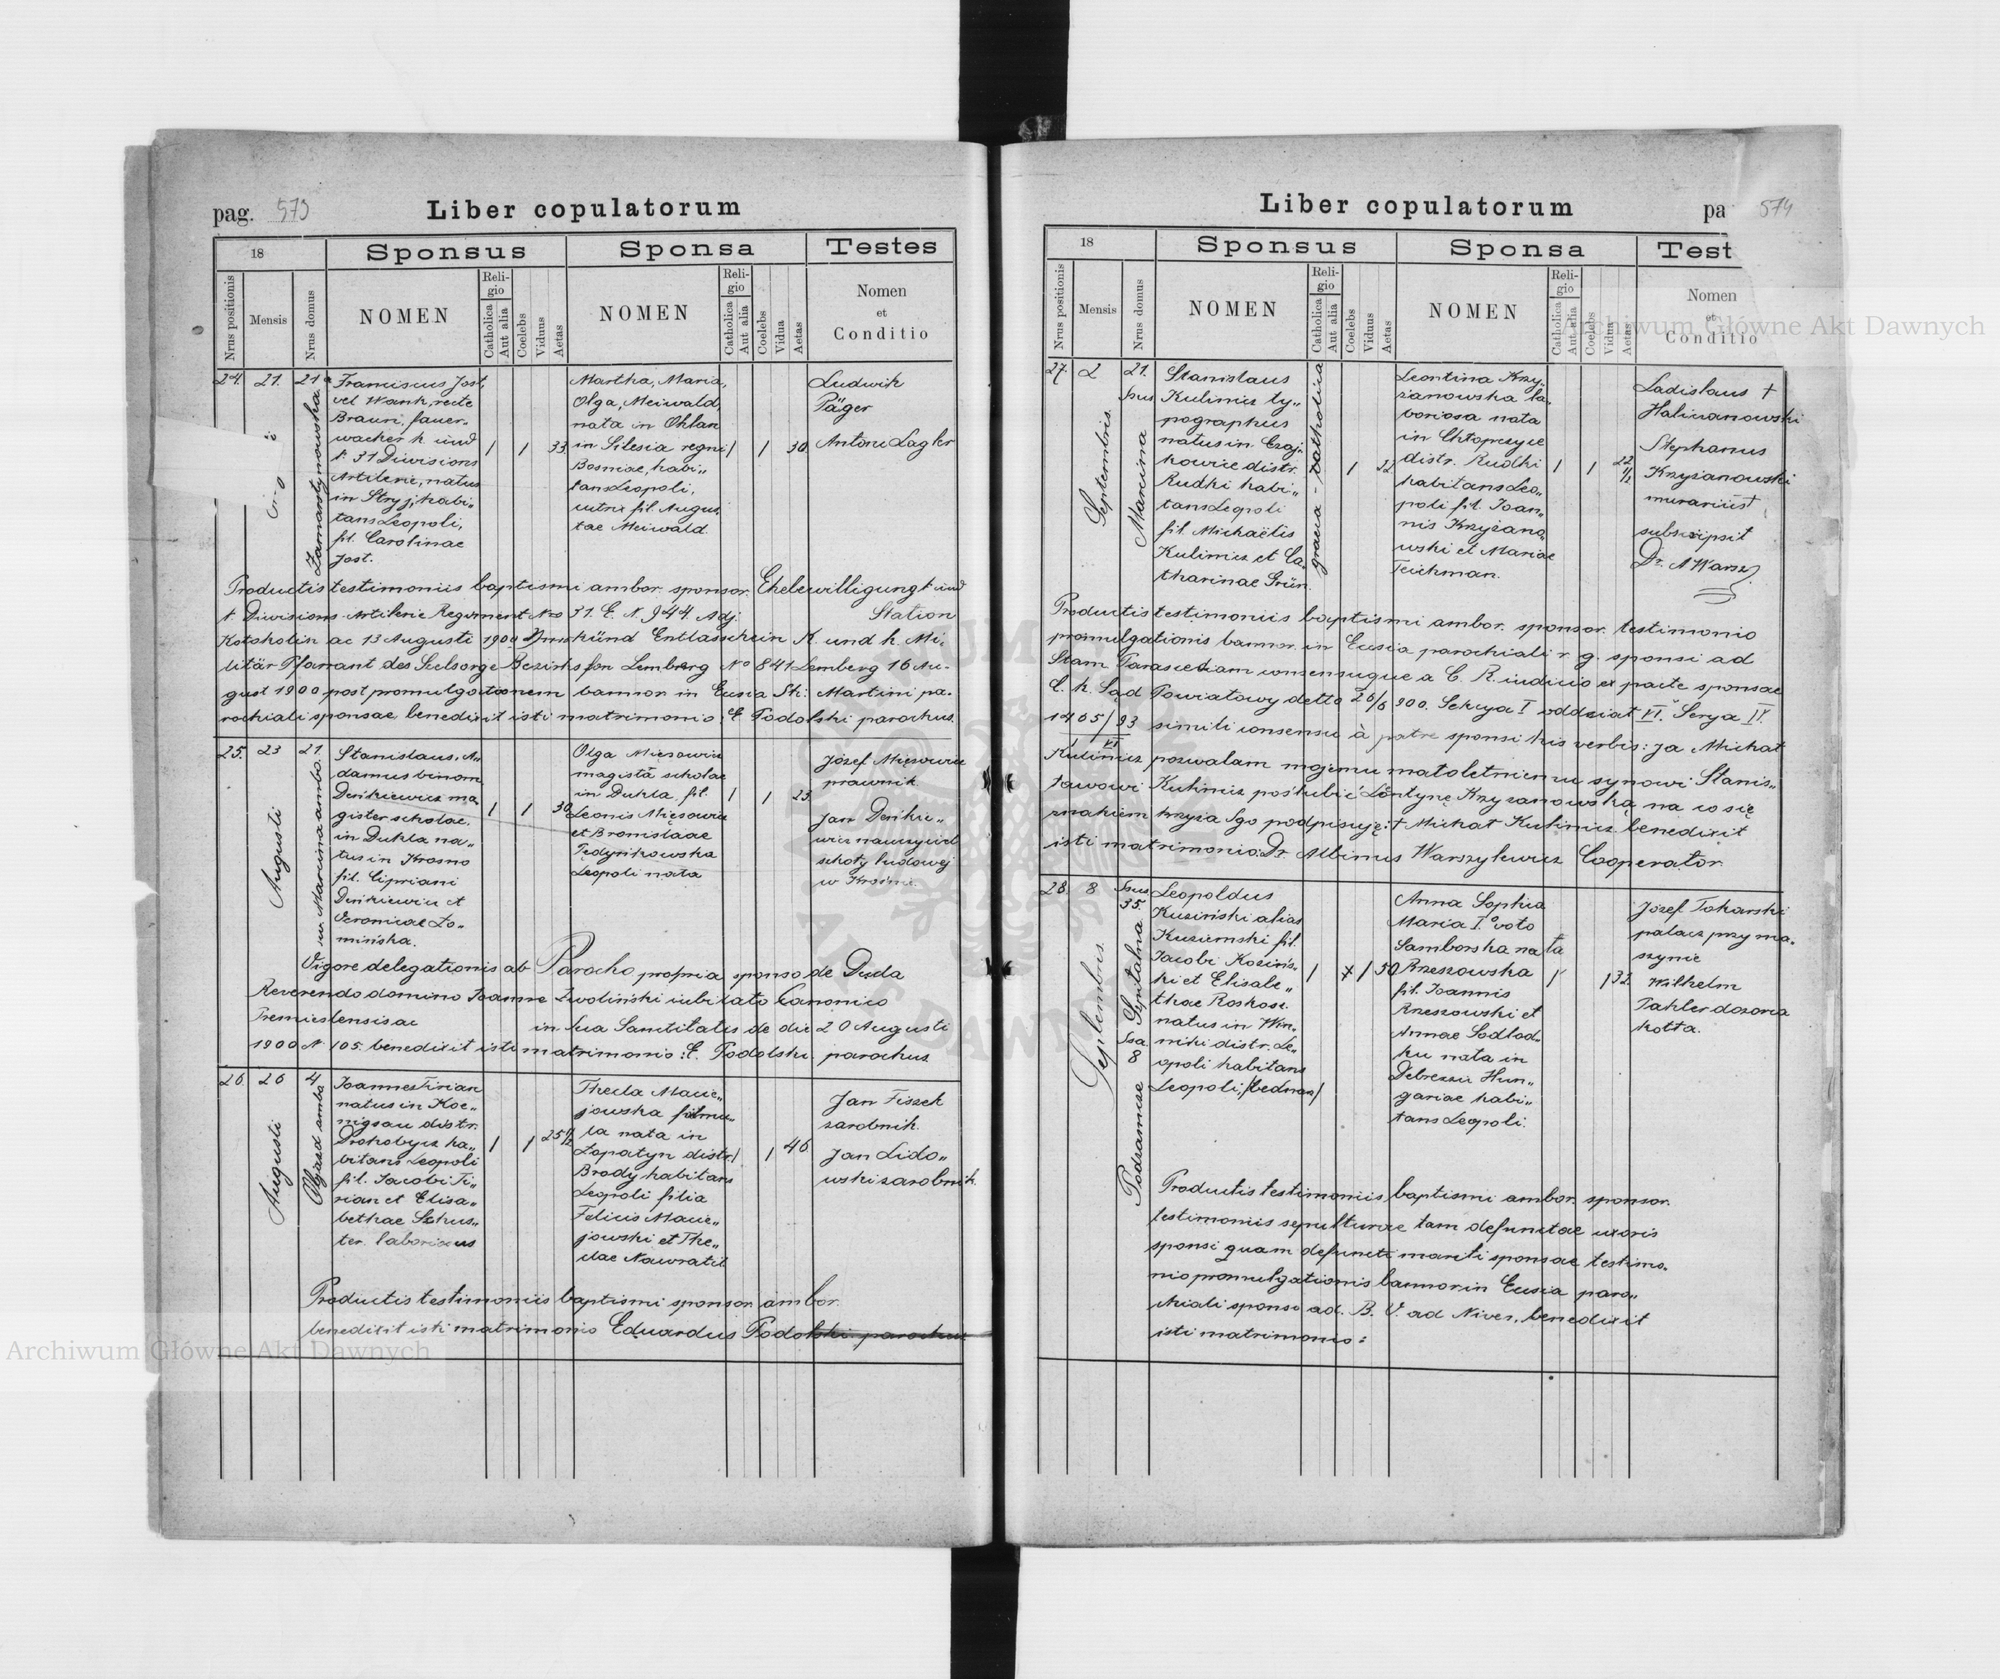 pag. 573
Liber copulatorum
18
Sponsus
Sponsa
Testes
Nrus positionis
Mensis
Nrus domus
NOMEN
Reli-
gio
Catholica
Aut alia
Coelebs
Viduus
Aetas
NOMEN
Reli-
gio
Catholica
Aut alia
Coelebs
Vidua
Aetas
Nomen
et
Conditio
24.
21.
21
Zamarstynowska
Franciscus Jost,
vel Wank, recte
Braun, fauer-
wacher k und
k 31 Divisions
Artilerie, natus
in Stryj, habi„
tans Leopoli,
fil. Carolinae
Jost.
1
1
33
Martha, Maria,
Olga, Meiwald,
nata in Ohlan
in Silesia regni
Bosniae, habi„
tans Leopoli,
nutrix fil. Augus.
tae Meiwald.
1
1
30
Ludwik
Päger
Antoni Lagler
Productis testimoniis baptismi ambor. sponsor. Ehelewilligung k und
k. Divisions Artilerie Regiment Nro 31. E. N. 944. Adj. Station
Kotsholin ac 13 Augusti 1900 Entlasschein K. und k. Mi-
litär Pfarrant des Seelsorge Bezirks fon Lemberg No 841 Lemberg 16 Au-
gust 1900 post promulgationem bannor. in Ecusia St: Martini pa-
rochiali sponsae, benedixit isti matrimonio: E Podolski parochus.
25.
23
21.
Augusti
św. Marcina ambo.
Stanislaus, A-
damus binom
Deńkiewicz ma.
gister scholae.
in Dukla na„
tus in Krosno
fil. Cipriani
Deńkiewicz et
Veronicae Lo„
mińska.
1
1
30
Olga Mięsowicz
magistä scholae
in Dukla, fil.
Leonis Mięsowicz
et Bronislaae
Tędyńkowska
Leopoli nata
1
1
23
Józef Mięsowicz
prawnik.
Jan Deńkie„
wicz nauczyciel
szkoły ludowej
w Krośnie.
Vigore delegationis ab Parocho propria sponso de Duda
Reverendo domino Joanne Zwoliński iubilato Canonico
Premislensis ac in sua Sanctitatis de die 20 Augusti
1900 N. 105. benedixit isti matrimonio: E. Podolski. parochus
26.
26
4
Augusti
Objazd ambo
Joannes Tirian
natus in Koe„
nigsau distr.
Drohobycz ha„
bitans Leopoli
fil. Jacobi Ti„
rian et Elisa„
bethae Schus„
ter. laboriosus
1
1
25 1/2
Thecla Macie„
jowska famu„
la nata in
Łopatyn distr.
Brody habitans
Leopoli filia
Felicis Macie„
jowski et The„
clae Nawratil
1
1
46
Jan Fiszek
zarobnik.
Jan Lido„
wski zarobnik.
Productis testimoniis baptismi sponsor. ambor.
benedixit isti matrimonio Eduardus Podolski parochus
Liber copulatorum
pa 574
18
Sponsus
Sponsa
Test
Nrus positionis
Mensis
Nrus domus
NOMEN
Reli-
gio
Catholica
Aut alia
Coelebs
Viduus
Aetas
NOMEN
Reli-
gio
Catholica
Aut alia
Coelebs
Vidua
Aetas
Nomen
et
Conditio
27.
2
21.
Septembris.
Marcina
Stanislaus
Kulinicz ty„
pographus
natus in Czaj-
kowice distr.
Rudki habi„
tans Leopoli
fil. Michaëlis
Kulinicz et Ca„
tharinae Grün.
graeca - catholica
1
22
Leontina Krzy„
żanowska la„
boriosa nata
in Chłopczyce
distr. Rudki
habitans Leo„
poli fil. Joan„
nis Krzyżano„
wski et Mariae
Teichman.
1
1
22 1/2
Ladislaus +
Haliczanowski
Stephanus
Krzyżanowski
murarius +
subscripsit
Dr. A Warsz
Productis testimoniis baptismi ambor. sponsor. testimonio
promulgationis bannor. in Ecusia parochiali r. g. sponsi ad
Stam Parascevam consensuque a C. R. iudicio ex parte sponsae
C. k. Sąd Powiatowy detto 26/6 900. Sekcya I oddział VI. Serya II.
1405/93 VI simili consensu à patre sponsi his verbis: ja Michał
Kulinicz pozwalam mojemu małoletniemu synowi Stanis„
ławowi Kulinicz poślubić Leontynę Krzyżanowską na co się
znakiem krzyża Sgo podpisuję: + Michał Kulinicz. benedixit
isti matrimonio: Dr. Albinus Warszylewicz Cooperator.
28.
8
Ssus
35.
Septembris.
Szpitalna
Ssa
8
Podzamcze
Leopoldus
Kuziński alias
Kuziemski fil.
Jacobi Kozińs„
ki et Elisabe„
thae Roskosz.
natus in Win„
niki distr. Le„
opoli habitans
Leopoli, (bednarz)
1
1
50
Anna Sophia
Maria I° voto
Samborska nata
Rzeszowska
fil. Joannis
Rzeszowski et
Annae Sodlod„
ku nata in
Debrezin Hun„
gariae habi„
tans Leopoli.
1
1
32.
Józef Tokarski
palacz przy ma.
szynie
Wilhelm
Pahler dozorca
kotła.
Productis testimoniis baptismi ambor. sponsor.
testimoniis sepulturae tam defunctae uxoris
sponsi quam defuncti mariti sponsae testimo„
nio promulgationis bannor in Ecusia paro„
chiali sponsi ad. B. V. ad Nives, benedixit
isti matrimonio:
Archiwum Główne Akt Dawnych
Archiwum Główne Akt Dawnych